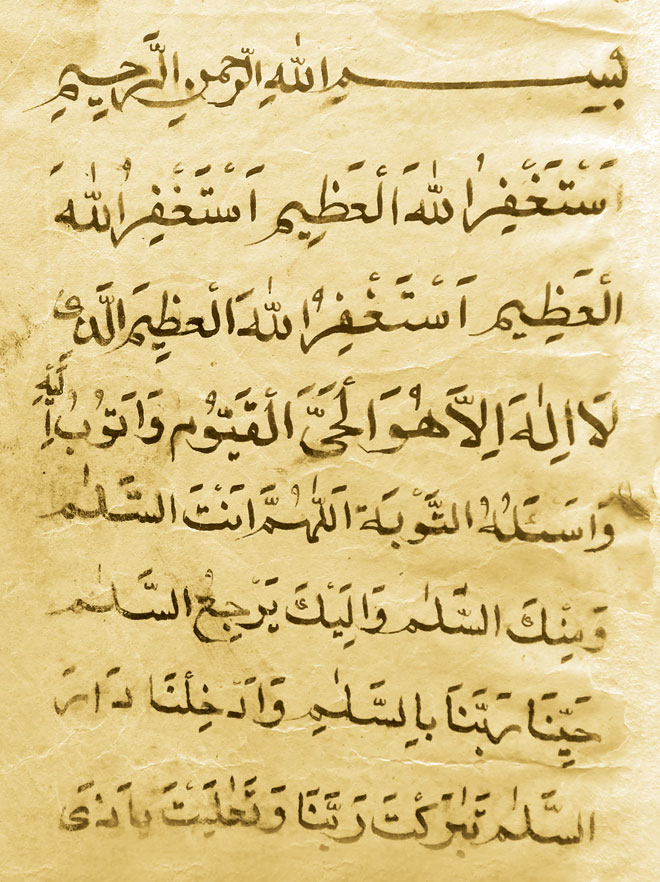 بِسْمِ اللّٰهِ الرَّحْمٰنِ الرَّحِيمِ
اَسْتَغْفِرُ اللّٰهَ الْعَظِيمِ اَسْتَغْفِرُ اللّٰهَ
الْعَظِيمِ اَسْتَغْفِرُ اللّٰهَ الْعَظِيمَ الَّذِى
لَا اِلٰهَ اِلَّا هُوَ الْحَىَّ الْقَيُّومَ وَاَتُوبُ اِلَيْهِ
وَاَسْئَلُهُ التَّوْبَةَ اَللّٰهُمَّ اَنْتَ السَّلٰم
وَمِنْكَ السَّلٰم وَاِلَيْكَ يَرْجِعُ السَّلٰم
حَيِّنَا رَبَّنَا بِالسَّلٰمِ وَاَدْخِلْنَا دَارَ
السَّلٰم تَبٰرَكْتَ رَبَّنَا وَتَعٰلَيْتَ يَاذَى